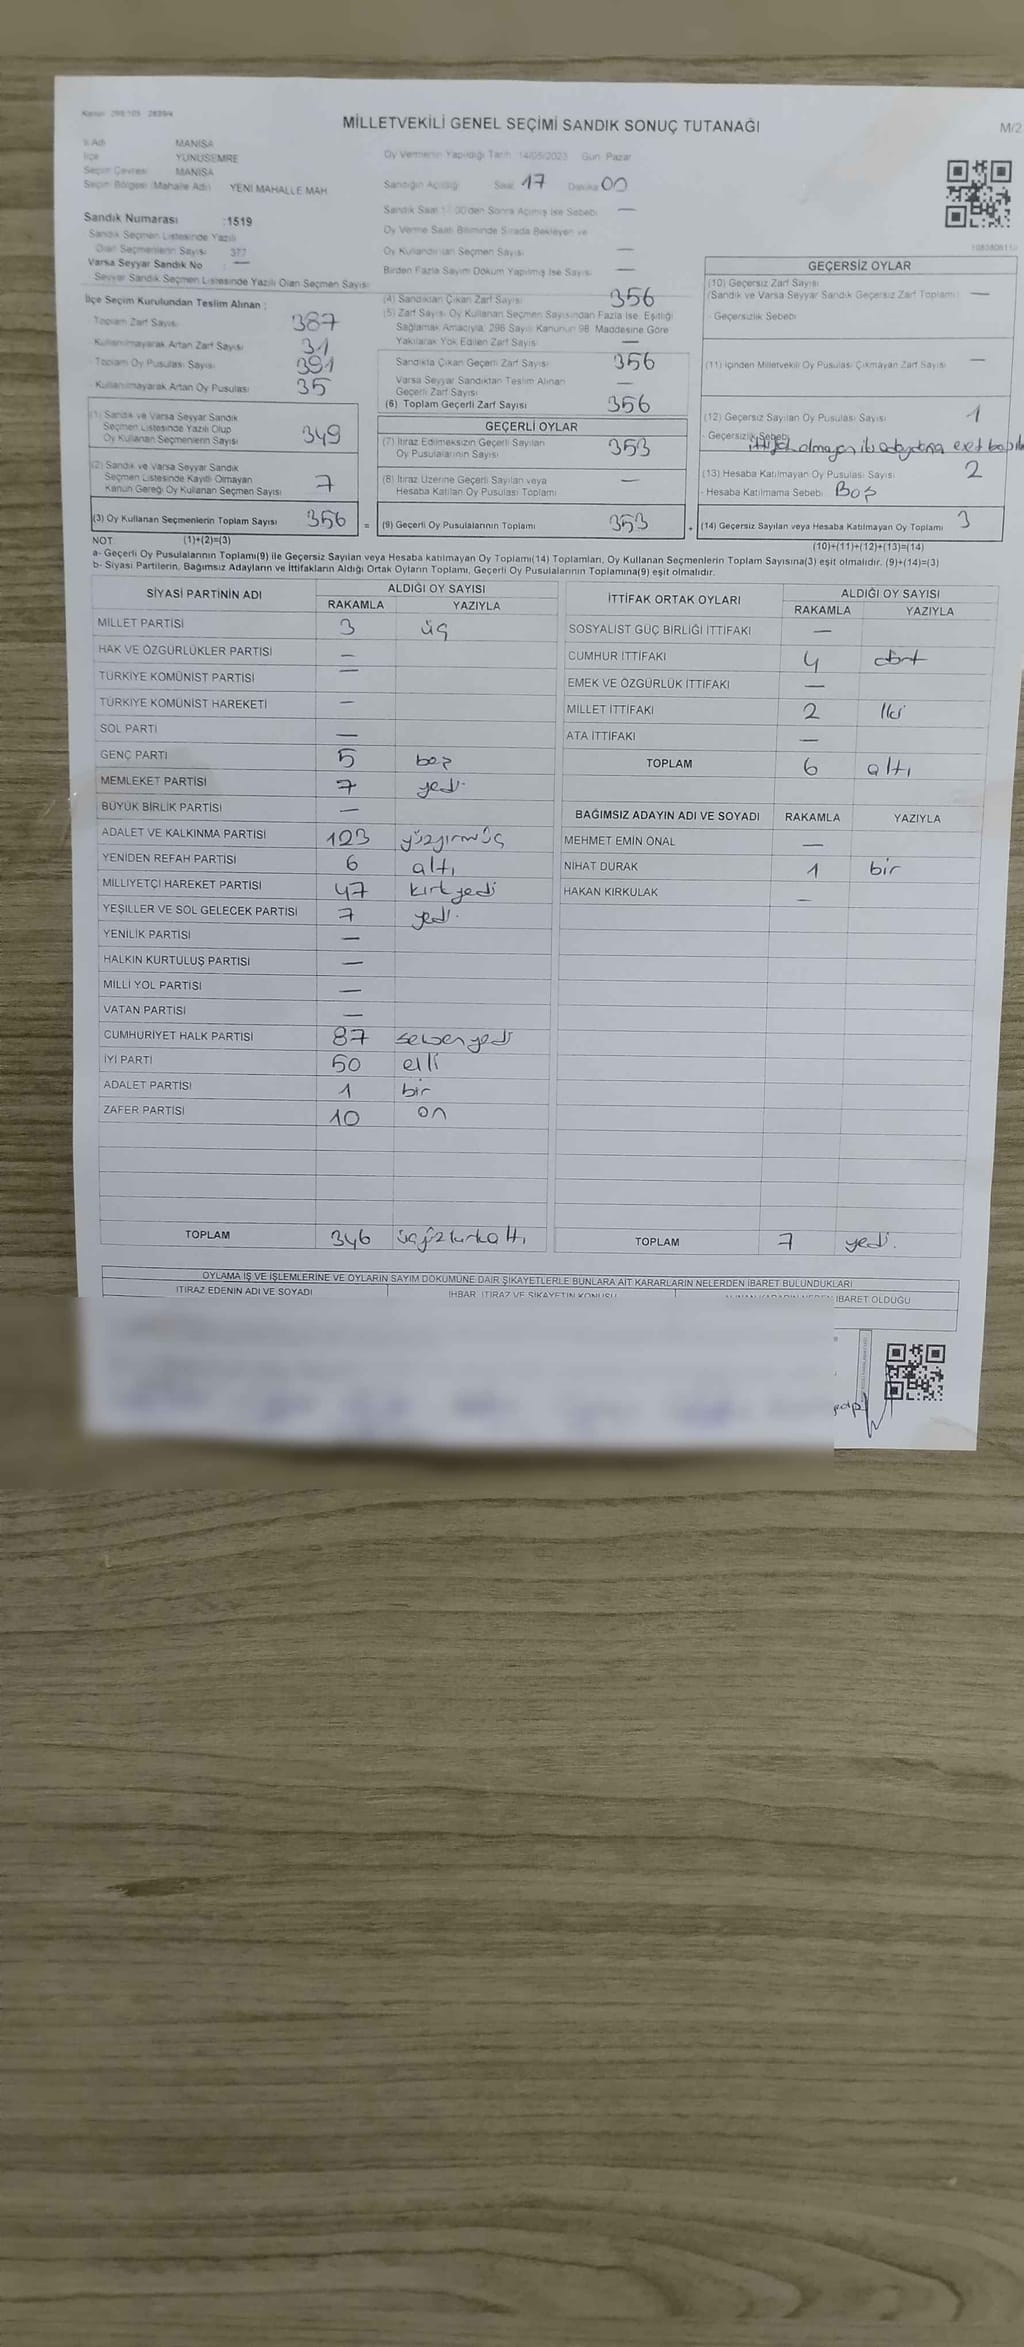 MİLLETVEKİLİ GENEL SEÇİMİ SANDIK SONUÇ TUTANAĞI
M/2
İl Adı MANİSA
İlçe YUNUSEMRE
Seçim Çevresi MANİSA
Seçim Bölgesi (Mahalle Adı) YENİ MAHALLE MAH.
Sandık Numarası :1519
Sandık Seçmen Listesinde Yazılı
Olan Seçmenlerin Sayısı 377
Varsa Seyyar Sandık No : —
Seyyar Sandık Seçmen Listesinde Yazılı Olan Seçmen Sayısı
Oy Vermenin Yapıldığı Tarih 14/05/2023 Gün: Pazar
Sandığın Açıldığı Saat 17 Dakika 00
Sandık Saat 17:00'den Sonra Açılmış İse Sebebi —
Oy Verme Saati Bitiminde Sırada Bekleyen ve
Oy Kullandırılan Seçmen Sayısı —
Birden Fazla Sayım Döküm Yapılmış İse Sayısı —
İlçe Seçim Kurulundan Teslim Alınan :
Toplam Zarf Sayısı 387
Kullanılmayarak Artan Zarf Sayısı 31
Toplam Oy Pusulası Sayısı 391
Kullanılmayarak Artan Oy Pusulası 35
(1) Sandık ve Varsa Seyyar Sandık
Seçmen Listesinde Yazılı Olup
Oy Kullanan Seçmenlerin Sayısı 349
(2) Sandık ve Varsa Seyyar Sandık
Seçmen Listesinde Kayıtlı Olmayan
Kanun Gereği Oy Kullanan Seçmen Sayısı 7
(3) Oy Kullanan Seçmenlerin Toplam Sayısı 356 =
(4) Sandıktan Çıkan Zarf Sayısı 356
(5) Zarf Sayısı Oy Kullanan Seçmen Sayısından Fazla İse, Eşitliği
Sağlamak Amacıyla, 298 Sayılı Kanunun 98. Maddesine Göre
Yakılarak Yok Edilen Zarf Sayısı —
Sandıkta Çıkan Geçerli Zarf Sayısı 356
Varsa Seyyar Sandıktan Teslim Alınan
Geçerli Zarf Sayısı —
(6) Toplam Geçerli Zarf Sayısı 356
GEÇERLİ OYLAR
(7) İtiraz Edilmeksizin Geçerli Sayılan
Oy Pusulalarının Sayısı 353
(8) İtiraz Üzerine Geçerli Sayılan veya
Hesaba Katılan Oy Pusulası Toplamı —
(9) Geçerli Oy Pusulalarının Toplamı 353 +
GEÇERSİZ OYLAR
(10) Geçersiz Zarf Sayısı
(Sandık ve Varsa Seyyar Sandık Geçersiz Zarf Toplamı) —
- Geçersizlik Sebebi
(11) İçinden Milletvekili Oy Pusulası Çıkmayan Zarf Sayısı —
(12) Geçersiz Sayılan Oy Pusulası Sayısı 1
- Geçersizlik Sebebi olmayan iki adaydana evet
(13) Hesaba Katılmayan Oy Pusulası Sayısı 2
- Hesaba Katılmama Sebebi Boş
(14) Geçersiz Sayılan veya Hesaba Katılmayan Oy Toplamı 3
NOT: (1)+(2)=(3) (10)+(11)+(12)+(13)=(14)
a- Geçerli Oy Pusulalarının Toplamı(9) ile Geçersiz Sayılan veya Hesaba katılmayan Oy Toplamı(14) Toplamları, Oy Kullanan Seçmenlerin Toplam Sayısına(3) eşit olmalıdır. (9)+(14)=(3)
b- Siyasi Partilerin, Bağımsız Adayların ve İttifakların Aldığı Ortak Oyların Toplamı, Geçerli Oy Pusulalarının Toplamına(9) eşit olmalıdır.
SİYASİ PARTİNİN ADI ALDIĞI OY SAYISI
RAKAMLA YAZIYLA
MİLLET PARTİSİ 3 üç
HAK VE ÖZGÜRLÜKLER PARTİSİ —
TÜRKİYE KOMÜNİST PARTİSİ —
TÜRKİYE KOMÜNİST HAREKETİ —
SOL PARTİ —
GENÇ PARTİ 5 beş
MEMLEKET PARTİSİ 7 yedi
BÜYÜK BİRLİK PARTİSİ —
ADALET VE KALKINMA PARTİSİ 123 yüzyirmiüç
YENİDEN REFAH PARTİSİ 6 altı
MİLLİYETÇİ HAREKET PARTİSİ 47 kırkyedi
YEŞİLLER VE SOL GELECEK PARTİSİ 7 yedi.
YENİLİK PARTİSİ —
HALKIN KURTULUŞ PARTİSİ —
MİLLİ YOL PARTİSİ —
VATAN PARTİSİ —
CUMHURİYET HALK PARTİSİ 87 seksenyedi
İYİ PARTİ 50 elli
ADALET PARTİSİ 1 bir
ZAFER PARTİSİ 10 on
TOPLAM 346 üçyüzkırkaltı
İTTİFAK ORTAK OYLARI ALDIĞI OY SAYISI
RAKAMLA YAZIYLA
SOSYALİST GÜÇ BİRLİĞİ İTTİFAKI —
CUMHUR İTTİFAKI 4 dört
EMEK VE ÖZGÜRLÜK İTTİFAKI —
MİLLET İTTİFAKI 2 İki
ATA İTTİFAKI —
TOPLAM 6 altı
BAĞIMSIZ ADAYIN ADI VE SOYADI RAKAMLA YAZIYLA
MEHMET EMİN ÖNAL —
NİHAT DURAK 1 bir
HAKAN KIRKULAK —
TOPLAM 7 yedi.
OYLAMA İŞ VE İŞLEMLERİNE VE OYLARIN SAYIM DÖKÜMÜNE DAİR ŞİKAYETLERLE BUNLARA AİT KARARLARIN NELERDEN İBARET BULUNDUKLARI
İTİRAZ EDENİN ADI VE SOYADI İHBAR, İTİRAZ VE ŞİKAYETİN KONUSU İBARET OLDUĞU